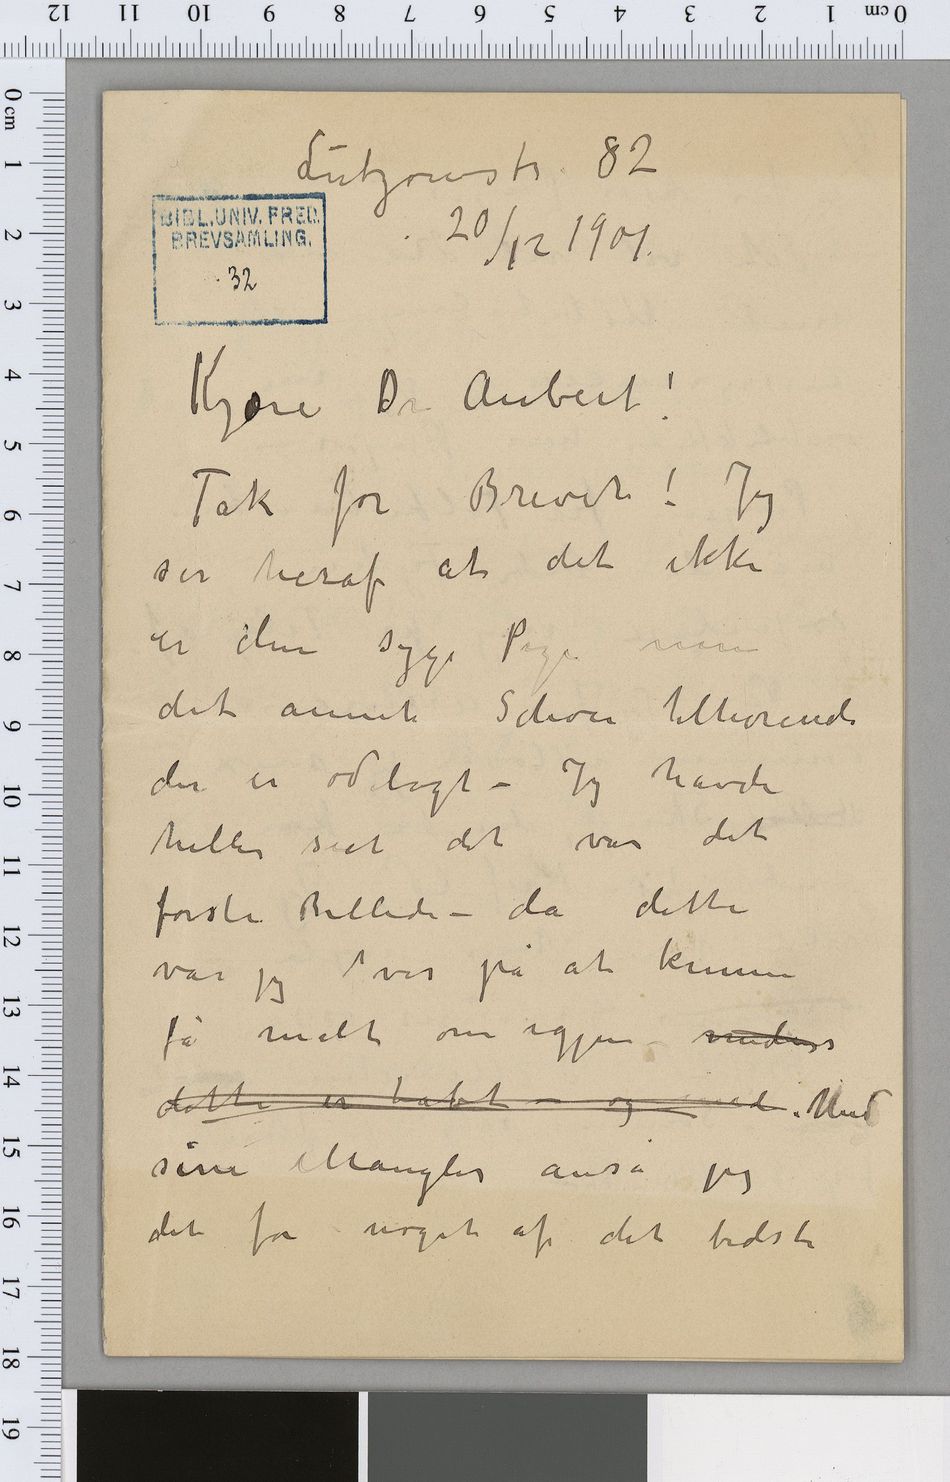 0 cm 1 2 3 4 5 6 7 8 9 10 11 12
0 cm 1 2 3 4 5 6 7 8 9 10 11 12 13 14 15 16 17 18 19
Lützowstr. 82
20/12 1901.
BIBL. UNIV. FRED.
BREVSAMLING.
32
Kjære Dr Aubert!
Tak for Brevet! Jeg
ser heraf at det ikke
er den syge Pige men
det annet Schou tilhørende
der er ødelagt – Jeg havde
heller seet det var det
første Billede – da dette
var jeg vis på at kunne
få malt om igjen – medens
dette er tabt – og med . Med
sine Mangler anså jeg
det for noget af det bedste